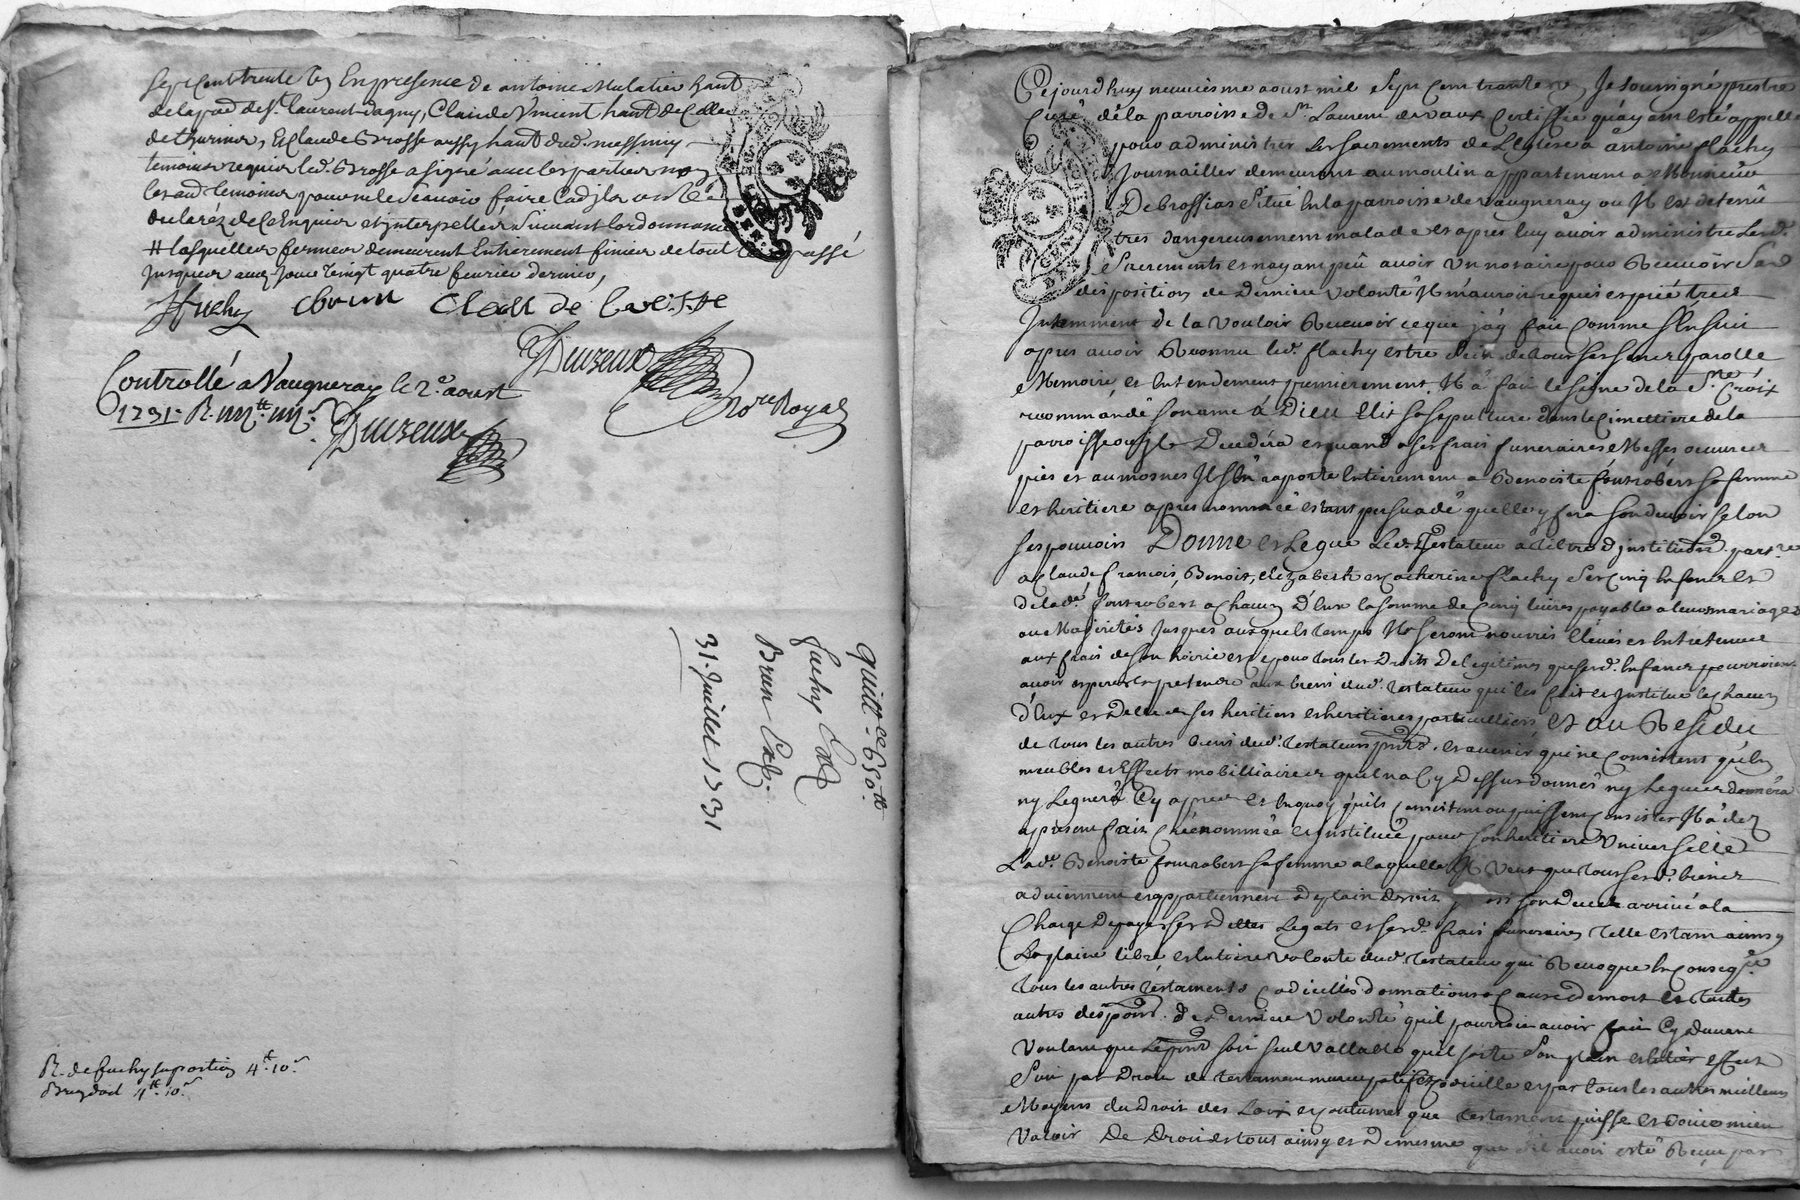 Sept cent trente un En presence de antoine Mulatier hant
de la pad de St. laurent dagny, Claude Vincent hant de Celles
de thurins, Et Claude Brosse aussy hant dud. messimy
temoins requis led. Brosse a signé avec les parties non
lesaud temoins pour ne le scavoir faire Cad ils ont
declaréz de ce Enquis et interpellés Suivant lordonnance
# lasquelles fermes demeurent Entierement finies de tout le passé
Jusques aux Jour vingt quatre feuvrier dernier,
fuchy Cbrun
Duizeux
Nore Royal
Controllé a Vaugneray le 2e. aoust
1731. R.
Duizeux
quitt.ce 650.tt
fuchy
Brun
31. Juillet 1731
R. de fuchy sa portion 4tt. 10s.
4tt. 10s.
Cejourdhuy neuviesme aoust mil Sept Cent trante , Je soussigné prestre
Curé de la parroisse de St. Laurent devaux Certiffie qu'ayant esté appellé
pour administrer les sacrements de L'eglise a antoine flachy
Journallier demeurant au moulin appartenant a Monsieur
De brossias Situé En la parroisse de vaugneray ou Il est detenû
tres dangereusement malade et apres luy avoir administré Lesd.
Sacrements et n'ayant peû avoir un nosaire pour Recevoir Sa
disposition de Derniere volonté Il m'auroit requis et prié tres
Instamment de la vouloir Recevoir ce que j'ay fait Comme s'En suit
apres avoir Reconnu led. flachy estre de ses sens parolle
Memoire et Entendement premierement Il a fait le signe de la Ste. Croix
recommandé son ame á Dieu Elit sa sepulture dans le Cimettiere de la
parroisse ou Il Decedera et quand a ses frais funeraires Messes oeuvres
pies et aumosnes Il s'En raporte Entierement a Benoiste fontrobert sa femme
et heritiere apres nommée Estant persuadé quelle y fera son devoir selon
ses pouvoirs Donne et Legue Led. Testateur a tiltre d'institution part.re
a Claude francois, Benoist, elizabeth et Catherine flachy Ses Cinq Enfans et
de lade. fontrobert a chacun D'Eux la somme de Cinq livres payable a leurs mariages
ou Majorités Jusques auxquels temps Ils seront nourris Elevés et Entretenus
aux frais de son hoirie et ce pour tous les Droits De legitimes que sesd. Enfans pourroient
avoir esperer et pretendre aux biens dud. Testateur qui les fait et Institue Chacun
d'Eux et Delles ses heritiers et heritieres particulliers Et au Residu
de tous les autres biens dud. Testateur pnts. et avenir qui ne Consistent qu'En
meubles et Effets mobilliaires quil n'a Cy Dessus donnés ny Legués donnera
ny Leguera Cy apres et En quoy qu'ils Consistent ou puissent Consister Il a de
a present fait Créé nommée et instituée pour son heritiere Universelle
Lade. Benoiste fontrobert sa femme a laquelle Il veut que tous sesd. biens
adviennent et appartiennent De plain Droit son Deces arrivé a la
Charge De payer ses Dettes Legats et sesd. frais funeraires Telle estant ainsy
La plaine libre et Entiere volonté dud. Testateur qui Revoque En Conseq.ce
tous les autres testaments Codicilles donnations a Cause de mort et toutes
autres dispons. de Derniere volonté qu'il pourroit avoir fait Cy Devant
voulant que Le pnt soit seul vallable quil sorte Son plain et Entier effect
Soit par Droit de testament nuncupatif Codicille et par tous les autres meilleurs
Moyens du Droit des Loix et Coutumes que testament puisse et doive mieux
valoir De Droit et tout ainsy et De mesme que s'il avoit esté Receu par